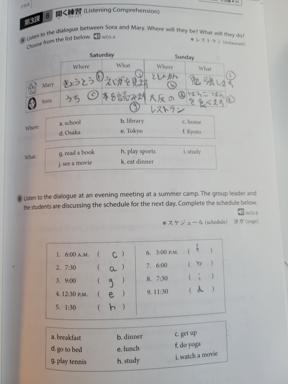 第3課 聞く練習 (Listening Comprehension)
Listen to the dialogue between Sora and Mary. Where will they be? What will they do?
Choose from the list below.
*レストラン (restaurant)
Saturday Sunday
Where What Where What
Mary
Sora うち
レストラン
Where: a. school b. library c. home
d. Osaka e. Tokyo f. Kyoto
What: g. read a book h. play sports i. study
j. see a movie k. eat dinner
Listen to the dialogue at an evening meeting at a summer camp. The group leader and
the students are discussing the schedule for the next day. Complete the schedule below.
*スケジュール (schedule) ヨガ (yoga)
1. 6:00 A.M. ( c ) 6. 3:00 P.M. ( f )
2. 7:30 ( a ) 7. 6:00 ( b )
3. 9:00 ( g ) 8. 7:30 ( i )
4. 12:30 P.M. ( e ) 9. 11:30 ( d )
5. 1:30 ( h )
a. breakfast b. dinner c. get up
d. go to bed e. lunch f. do yoga
g. play tennis h. study i. watch a movie